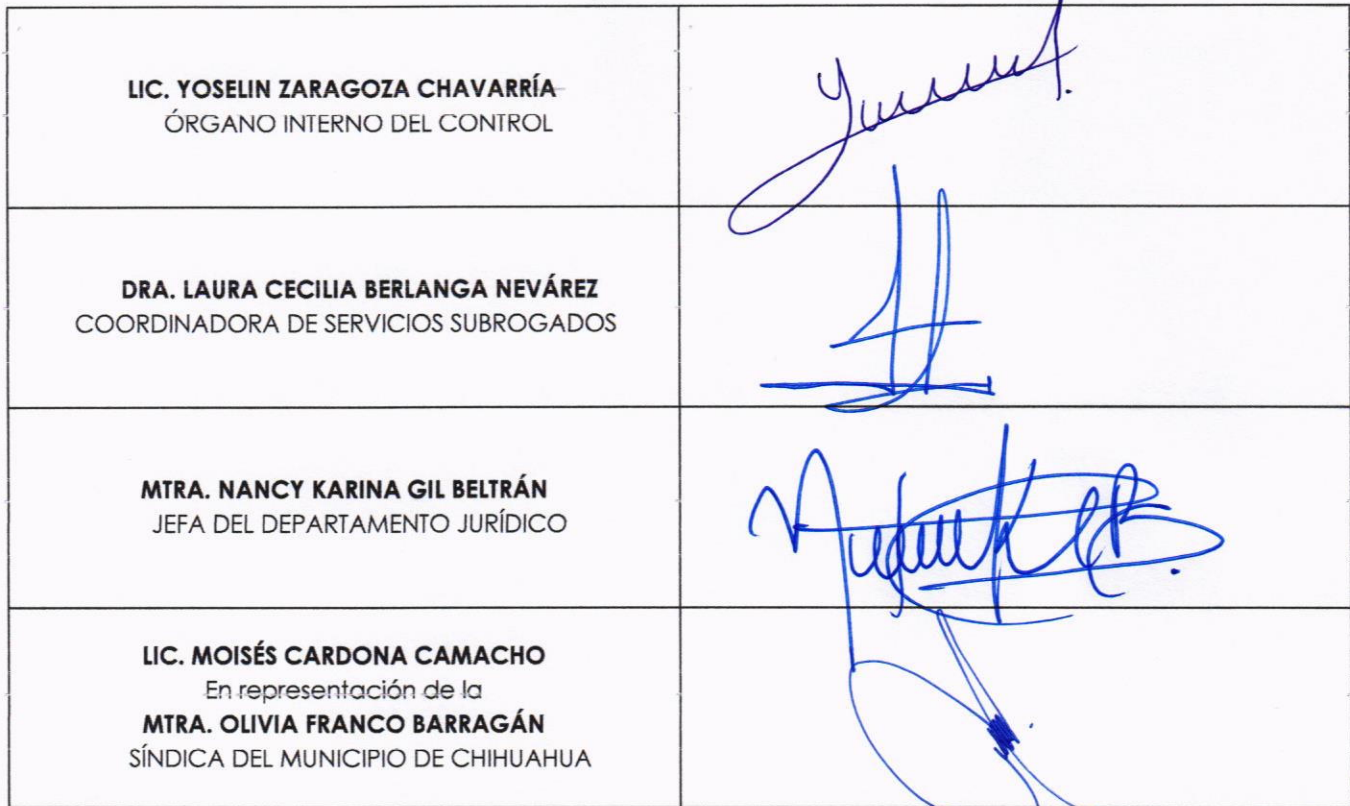 LIC. YOSELIN ZARAGOZA CHAVARRÍA
ÓRGANO INTERNO DEL CONTROL
DRA. LAURA CECILIA BERLANGA NEVÁREZ
COORDINADORA DE SERVICIOS SUBROGADOS
MTRA. NANCY KARINA GIL BELTRÁN
JEFA DEL DEPARTAMENTO JURÍDICO
LIC. MOISÉS CARDONA CAMACHO
En representación de la
MTRA. OLIVIA FRANCO BARRAGÁN
SÍNDICA DEL MUNICIPIO DE CHIHUAHUA